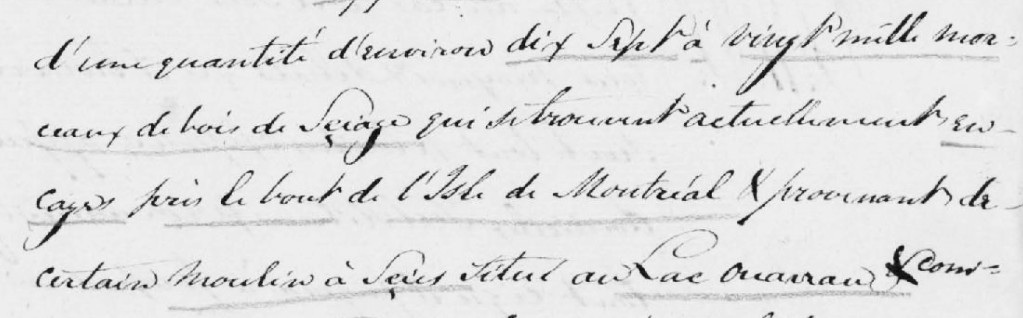 d'une quantité d'environ dix Sept à vingt mille mor=
ceaux de bois de Sçiage qui se trouvent actuellement en-
cages près le bout de l'Isle de Montréal X provenant de
certain Moulin à Scies Situé au Lac Ouarrau X com=